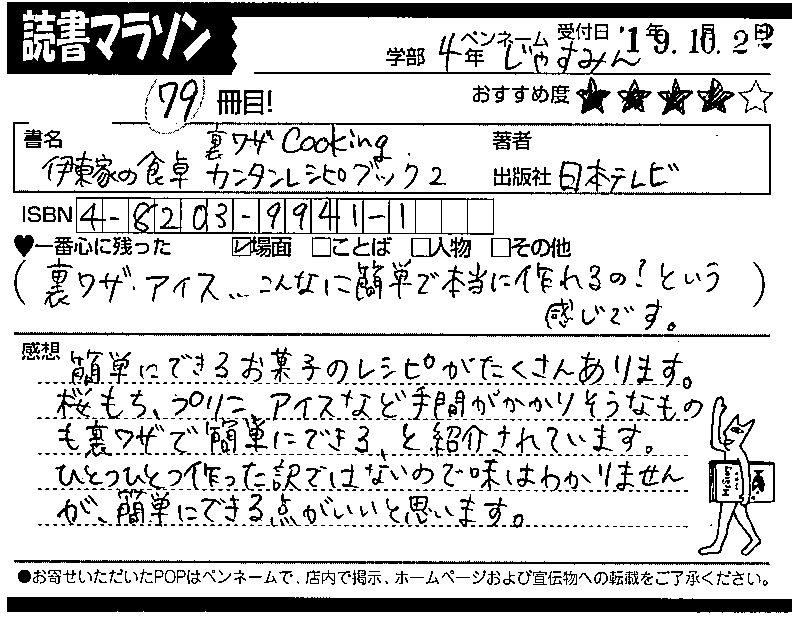 読書マラソン
学部 4年 ペンネーム じゃすみん 受付日 '19.10.2
79 冊目! おすすめ度 ★★★★☆
書名 裏ワザ Cooking 著者
伊東家の食卓 カンタンレシピブック2 出版社 日本テレビ
ISBN 4-8203-9941-1
♥一番心に残った ☑場面 □ことば □人物 □その他
(裏ワザ・アイス…こんなに簡単で本当に作れるの?という
感じです。)
感想 簡単にできるお菓子のレシピがたくさんあります。
桜もち、プリン、アイスなど手間がかかりそうなもの
も裏ワザで簡単にできる、と紹介されています。
ひとつひとつ作った訳ではないので味はわかりません
が、簡単にできる点がいいと思います。
●お寄せいただいたPOPはペンネームで、店内で掲示、ホームページおよび宣伝物への転載をご了承ください。